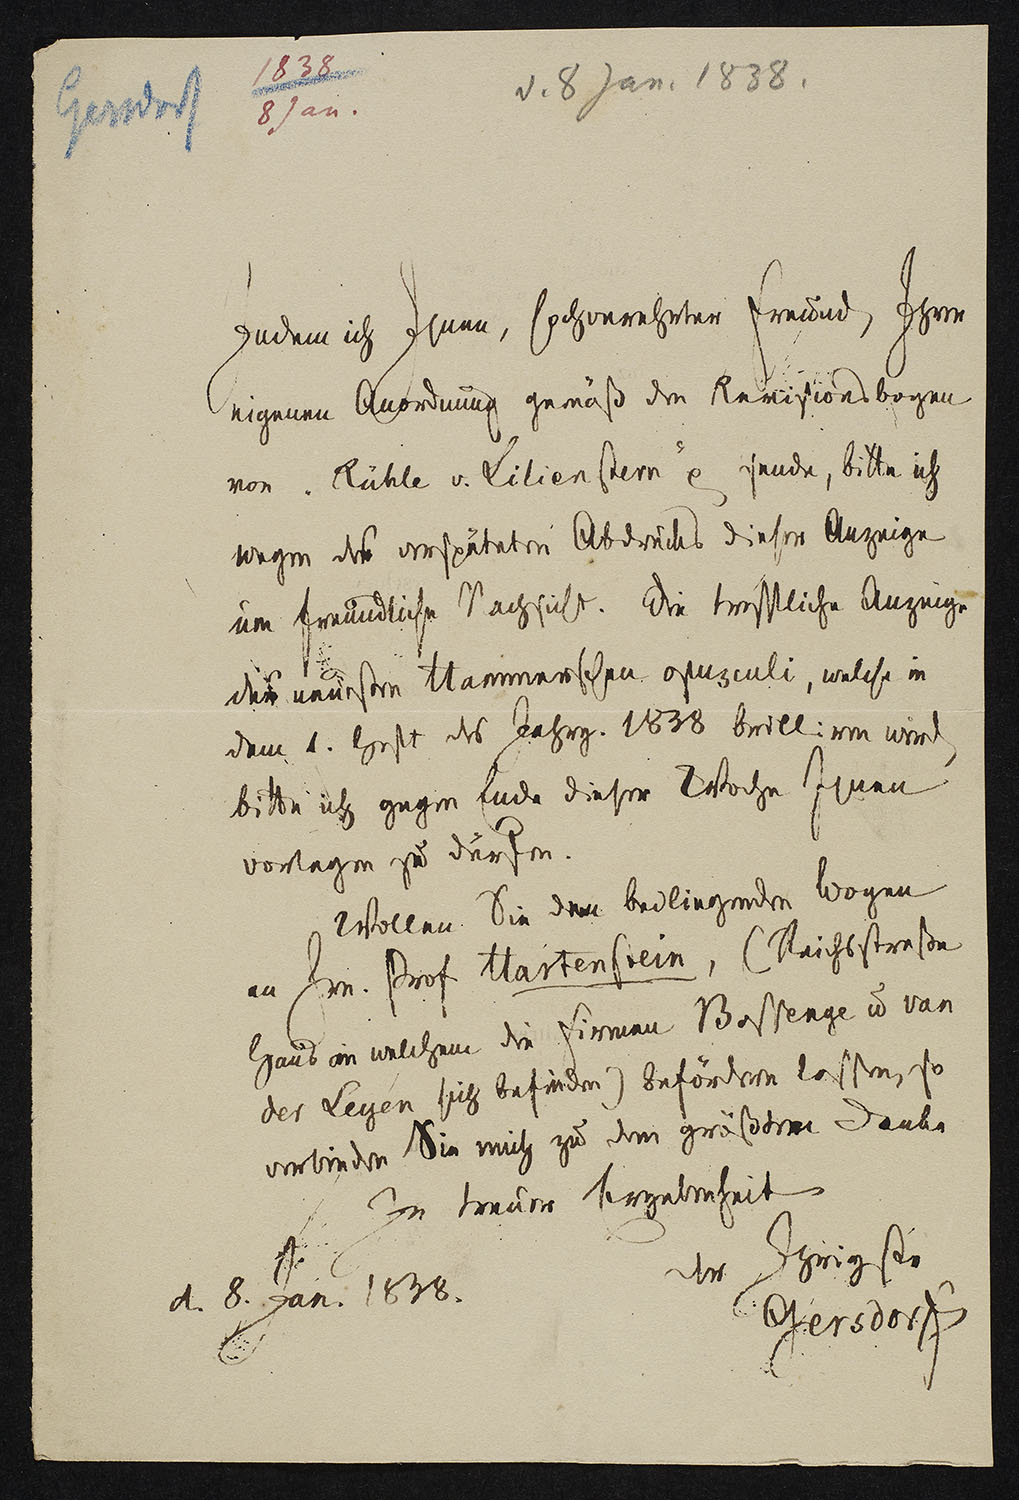 Gersdorf
1838
8 Jan.
d. 8 Jan. 1838.
Indem ich Ihnen, hochverehrter Freund, Ihrer
eigenen Anordnung gemäß den Revisionsbogen
von „Rühle v. Lilienstern“ sende, bitte ich
wegen des verspäteten Abdrucks dieser Anzeige
um freundliche Nachsicht. Die treffliche Anzeige
des neuesten Hammerschen opusculi, welche in
dem 1. Heft des Jahrg. 1838 brilliren wird,
bitte ich gegen Ende dieser Woche Ihnen
vorlegen zu dürfen.
Wollen Sie den beiliegenden Bogen
an Hrn. Prof Hartenstein, (Reichsstraße
Haus in welchem die Firmen Bassenge u van
der Leyen sich befinden) befördern lassen, so
verbinden Sie mich zu dem größten Danke
In treuer Ergebenheit
der Ihrigste
d. 8. Jan. 1838.
Gersdorf